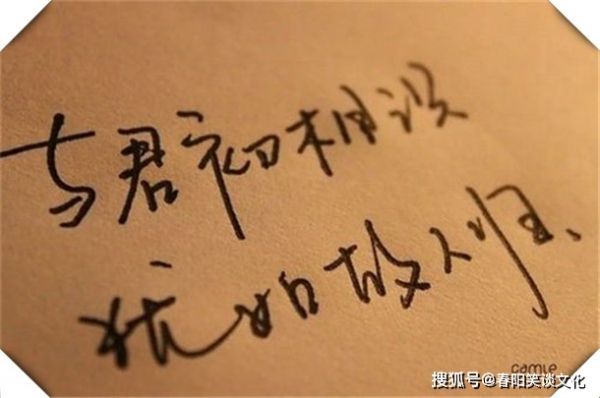 与君初相识
犹如故人归、
camle
搜狐号@春阳笑谈文化